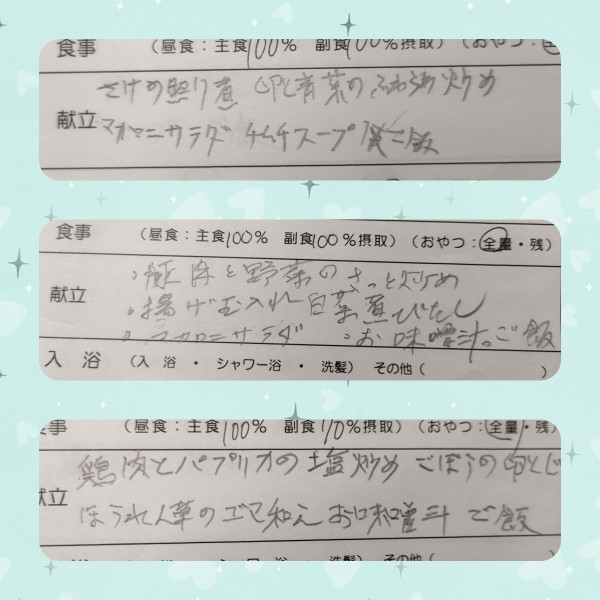 食事 (昼食:主食100% 副食100%摂取) (おやつ:全
献立 さけの照り煮 卵と青菜のふわふわ炒め
マカロニサラダ キムチスープ ご飯
食事 (昼食:主食100% 副食100%摂取) (おやつ:全量・残)
献立 ・豚肉と野菜のさっと炒め
・揚げ玉入れ白菜煮びたし
・マカロニサラダ ・お味噌汁。ご飯
入浴 (入浴・シャワー浴・洗髪) その他( )
食事 (昼食:主食100% 副食110%摂取) (おやつ:全量・残)
献立 鶏肉とパプリカの塩炒め ごぼうの卵とじ
ほうれん草のゴマ和え お味噌汁 ご飯